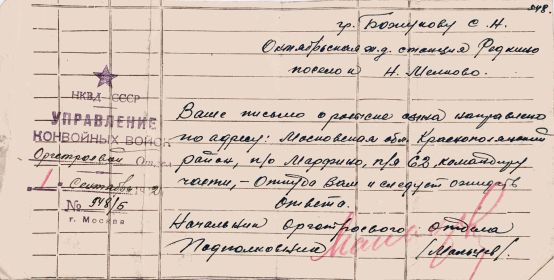 948.
гр. Божукову С. Н.
Октябрьская ж.д. станция Редкино
поселок Н. Мелково.
НКВД СССР
УПРАВЛЕНИЕ
КОНВОЙНЫХ ВОЙСК
Оргстроевой Отдел
1 Сентября 2
№ 948/б
г. Москва
Ваше письмо о розыске сына направлено
по адресу: Московская обл. Краснополянский
район, п/о Марфино, п/я 62 командиру
части, – Откуда Вам и следует ожидать
ответа.
Начальник Оргстроевого отдела
Подполковник /Мальцев/.